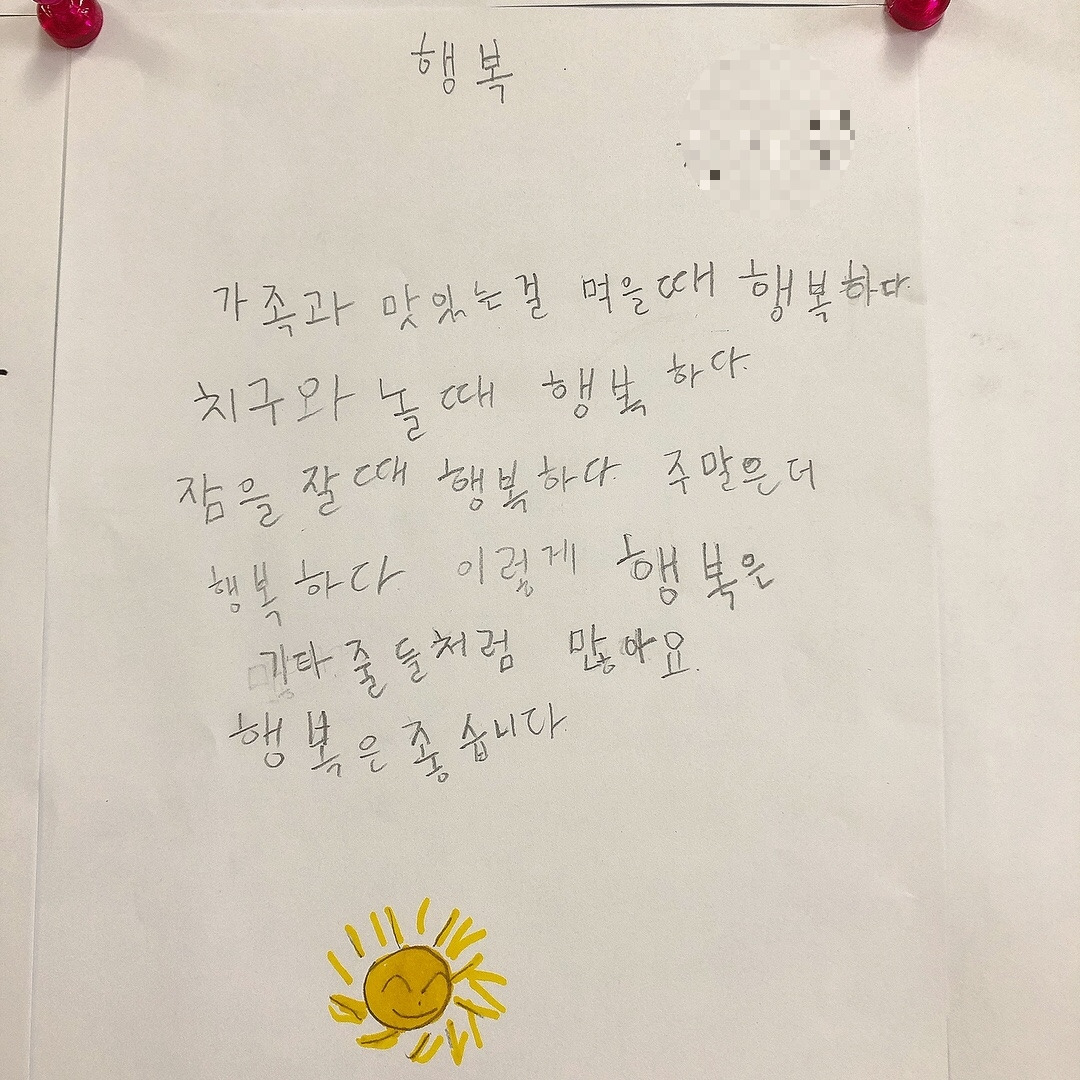 행복
가족과 맛있는걸 먹을때 행복하다.
치구와 놀때 행복하다.
잠을 잘때 행복하다 주말은더
행복하다 이렇게 행복은
기타줄들처럼 많아요.
행복은 좋습니다